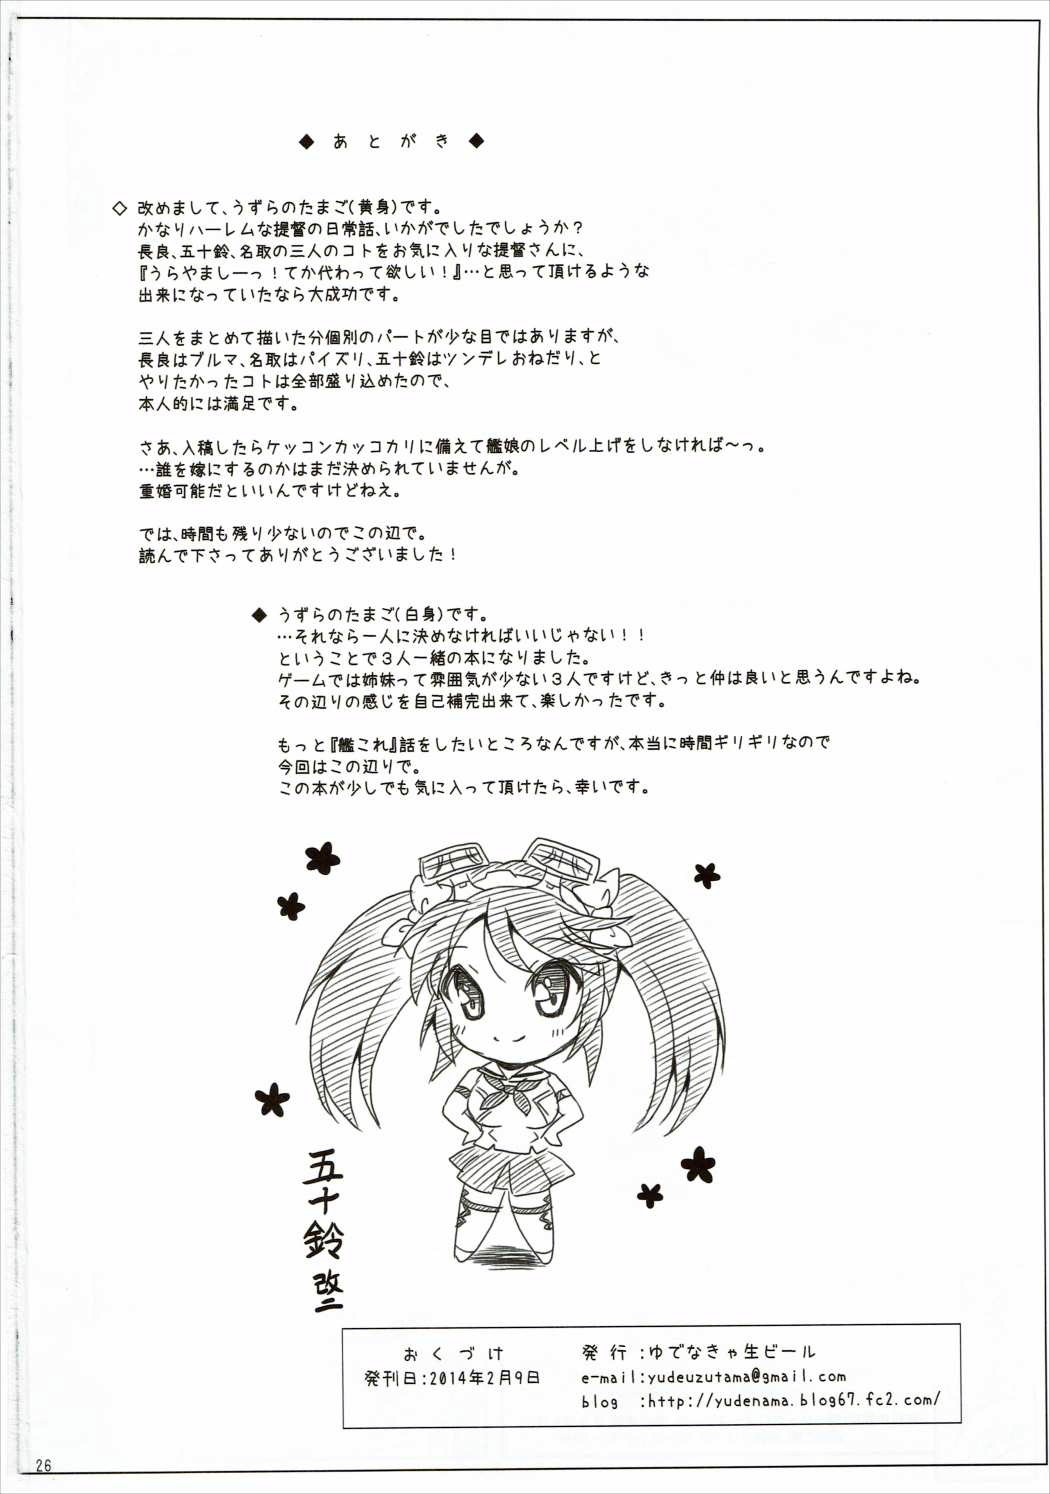 ◆ あとがき ◆
◇ 改めまして、うずらのたまご(黄身)です。
かなりハーレムな提督の日常話、いかがでしたでしょうか?
長良、五十鈴、名取の三人のコトをお気に入りな提督さんに、
『うらやましーっ!てか代わって欲しい!』…と思って頂けるような
出来になっていたなら大成功です。
三人をまとめて描いた分個別のパートが少な目ではありますが、
長良はブルマ、名取はパイズリ、五十鈴はツンデレおねだり、と
やりたかったコトは全部盛り込めたので、
本人的には満足です。
さあ、入稿したらケッコンカッコカリに備えて艦娘のレベル上げをしなければ〜っ。
…誰を嫁にするのかはまだ決められていませんが。
重婚可能だといいんですけどねえ。
では、時間も残り少ないのでこの辺で。
読んで下さってありがとうございました!
◆ うずらのたまご(白身)です。
…それなら一人に決めなければいいじゃない!!
ということで3人一緒の本になりました。
ゲームでは姉妹って雰囲気が少ない3人ですけど、きっと仲は良いと思うんですよね。
その辺りの感じを自己補完出来て、楽しかったです。
もっと『艦これ』話をしたいところなんですが、本当に時間ギリギリなので
今回はこの辺りで。
この本が少しでも気に入って頂けたら、幸いです。
五十鈴改二
おくづけ
発刊日:2014年2月9日
発行:ゆでなきゃ生ビール
e-mail:yudeuzutama@gmail.com
blog :http://yudenama.blog67.fc2.com/
26